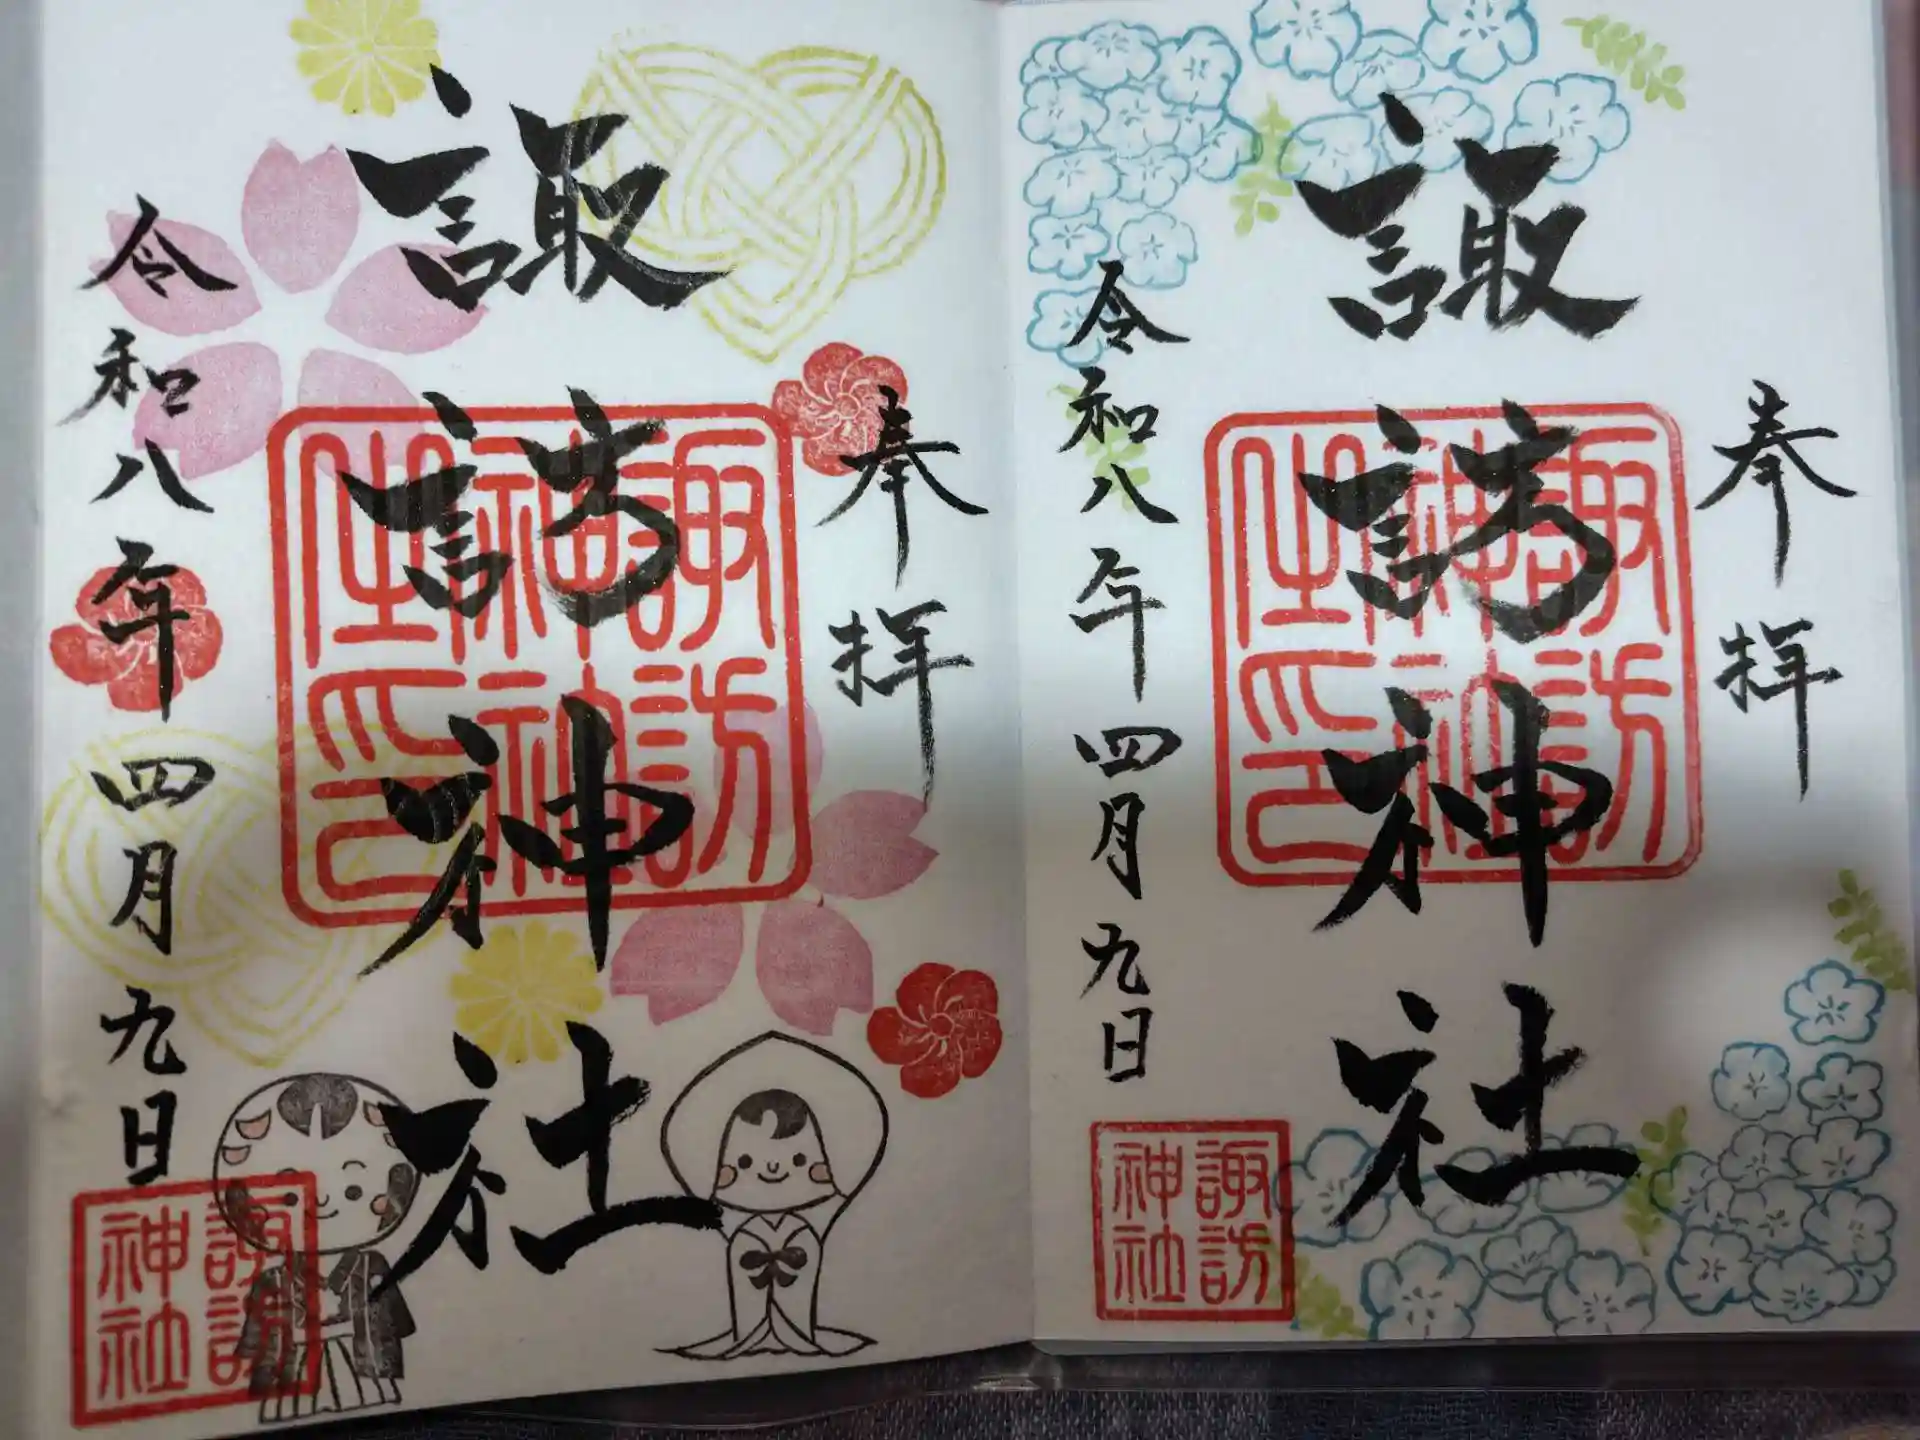 奉拝
諏訪神社
令和八年四月九日
諏訪
神社
之印
諏訪
神社
奉拝
諏訪神社
令和八年四月九日
諏訪
神社
之印
諏訪
神社